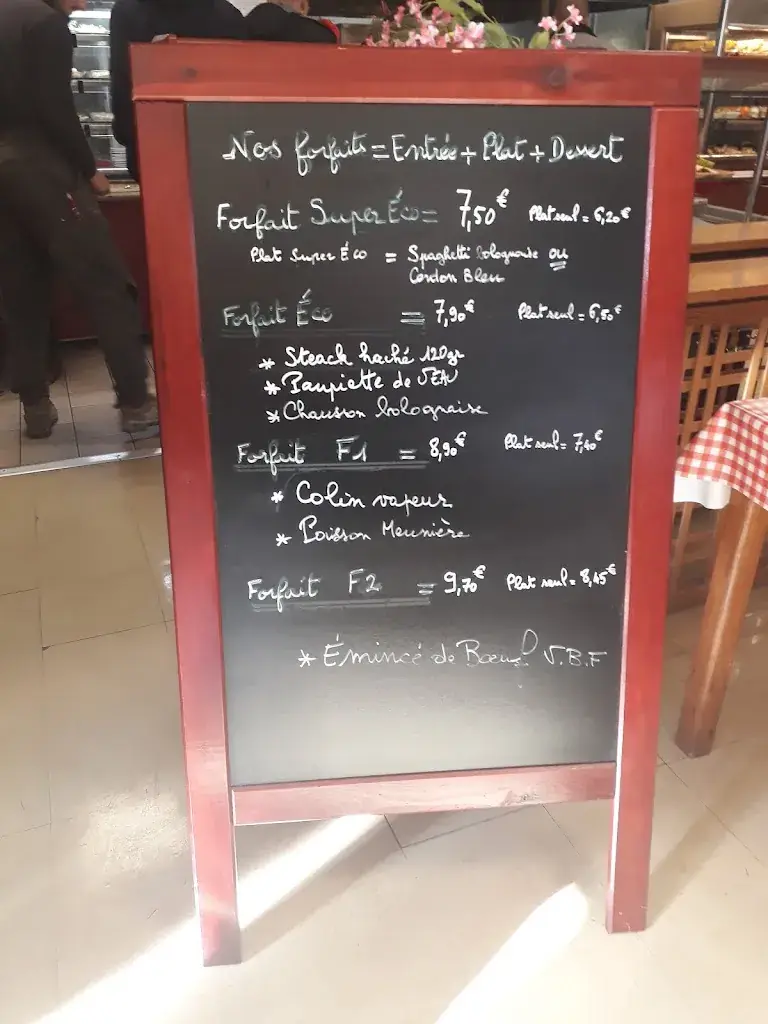 Nos forfaits = Entrée + Plat + Dessert
Forfait Super Éco = 7,50€ Plat seul = 6,20€
Plat Super Éco = Spaghetti bolognaise ou
Cordon Bleu
Forfait Éco = 7,90€ Plat seul = 6,50€
* Steack haché 120gr
* Paupiette de VEAU
* Chausson bolognaise
Forfait F1 = 8,90€ Plat seul = 7,40€
* Colin vapeur
* Poisson Meunière
Forfait F2 = 9,70€ Plat seul = 8,45€
* Émincé de Bœuf V.B.F